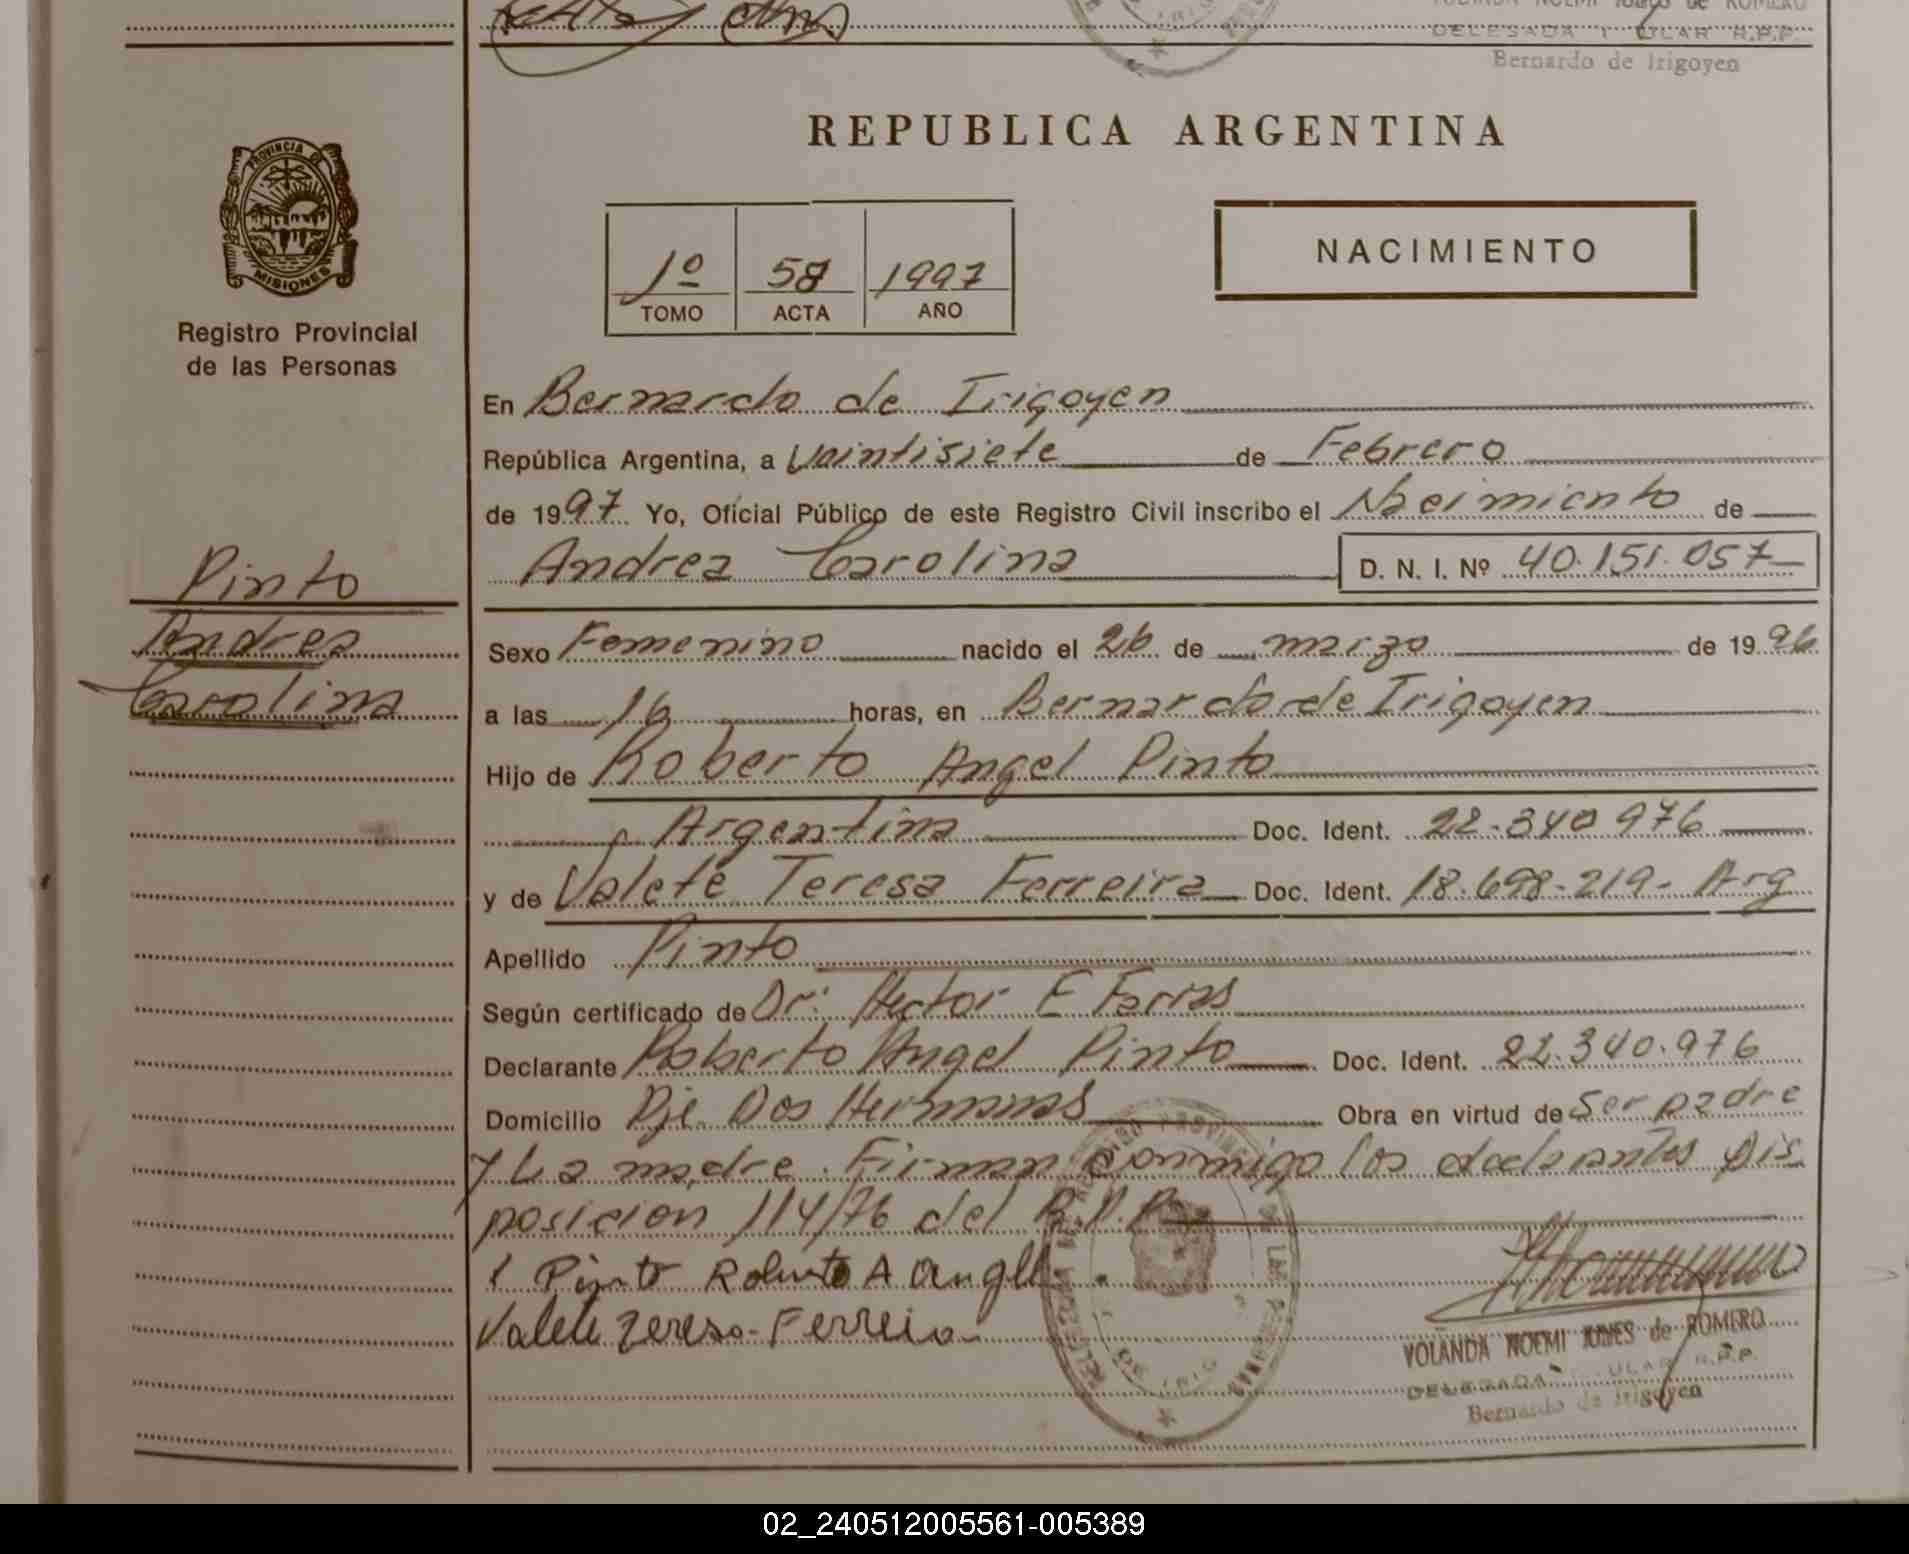 YOLANDA NOEMI de ROMERO
DELEGADA T ULAR R.P.P.
Bernardo de Irigoyen
REPUBLICA ARGENTINA
PROVINCIA DE
MISIONES
Registro Provincial
de las Personas
1º 58 1997
TOMO ACTA AÑO
NACIMIENTO
En Bernardo de Irigoyen
República Argentina, a Veintisiete de Febrero
de 1997 Yo, Oficial Público de este Registro Civil inscribo el Nacimiento de
Andrea Carolina D. N. I. Nº 40.151.057
Pinto
Andrea
Carolina
Sexo Femenino nacido el 26 de marzo de 1996
a las 16 horas, en Bernardo de Irigoyen
Hijo de Roberto Angel Pinto
Argentina Doc. Ident. 22.340.976
y de Valete Teresa Ferreira Doc. Ident. 18.698.219- Arg
Apellido Pinto
Según certificado de Dr: Hector E Farias
Declarante Roberto Angel Pinto Doc. Ident. 22.340.976
Domicilio Pje. Dos Hermanas Obra en virtud de Ser padre
y La madre. Firman conmigo los Dis
posicion 114/76 del R.P.P.
Pinto Roberto A Angel
Valete Teresa Ferreira
YOLANDA NOEMI de ROMERO
DELEGADA ULAR R.P.P.
Bernardo de Irigoyen
02_240512005561-005389